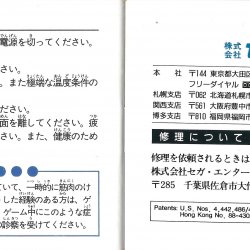 電源を切ってください。
い。
い。また極端な温度条件の
い。
面を離してください。疲
ください。また、健康のため
いて、一時的に筋肉のけ
した経験のある方は、ゲ
ゲーム中にこのような症
の診察を受けてください。
株式
会社
本社 〒144 東京都大田区
フリーダイヤル
札幌支店 〒062 北海道札幌市
関西支店 〒561 大阪府豊中市
博多支店 〒810 福岡県福岡市
修理について
修理を依頼されるときは
株式会社セガ・エンター
〒285 千葉県佐倉市大作
Patents: U.S. Nos. 4,442,486/4
Hong Kong No. 88-430